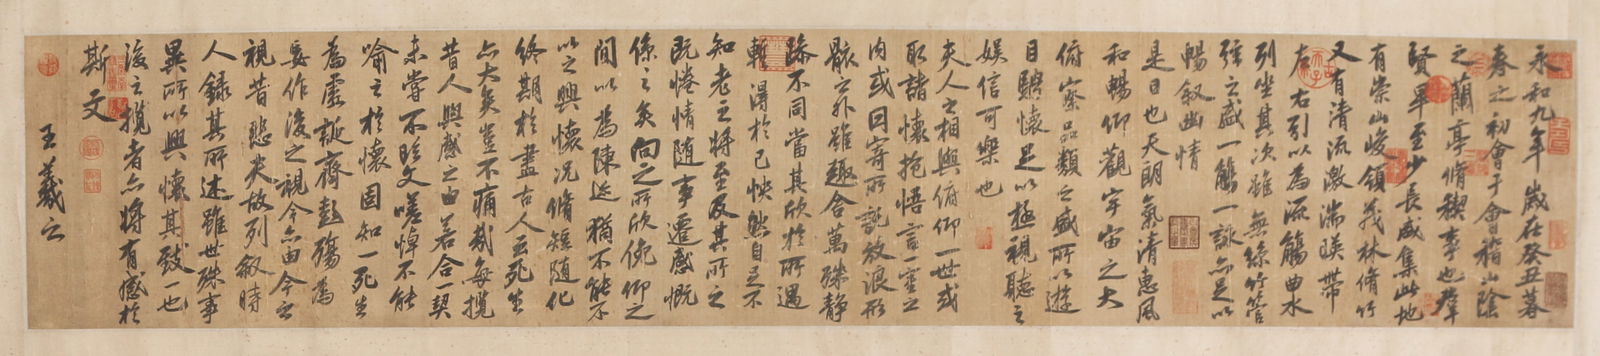 永和九年歲在癸丑暮
春之初會于會稽山陰
之蘭亭脩稧事也羣
賢畢至少長咸集此地
有崇山峻領茂林脩竹
又有清流激湍暎帶
左右引以為流觴曲水
列坐其次雖無絲竹管
弦之盛一觴一詠亦足以
暢叙幽情
是日也天朗氣清惠風
和暢仰觀宇宙之大
俯察品類之盛所以遊
目騁懷足以極視聽之
娛信可樂也
夫人之相與俯仰一世或
取諸懷抱悟言一室之
內或因寄所託放浪形
骸之外雖趣舍萬殊静
躁不同當其欣於所遇
暫得於己怏然自足不
知老之將至及其所之
既惓情随事遷感慨
係之矣向之所欣俛仰之
間以為陳迹猶不能不
以之興懷况脩短随化
終期於盡古人云死生
亦大矣豈不痛哉每攬
昔人興感之由若合一契
未嘗不臨文嗟悼不能
喻之於懷固知一死生
為虛誕齊彭殤為
妄作後之視今亦由今之
視昔悲夫故列叙時
人録其所述雖世殊事
異所以興懷其致一也
後之攬者亦將有感於
斯文
王羲之